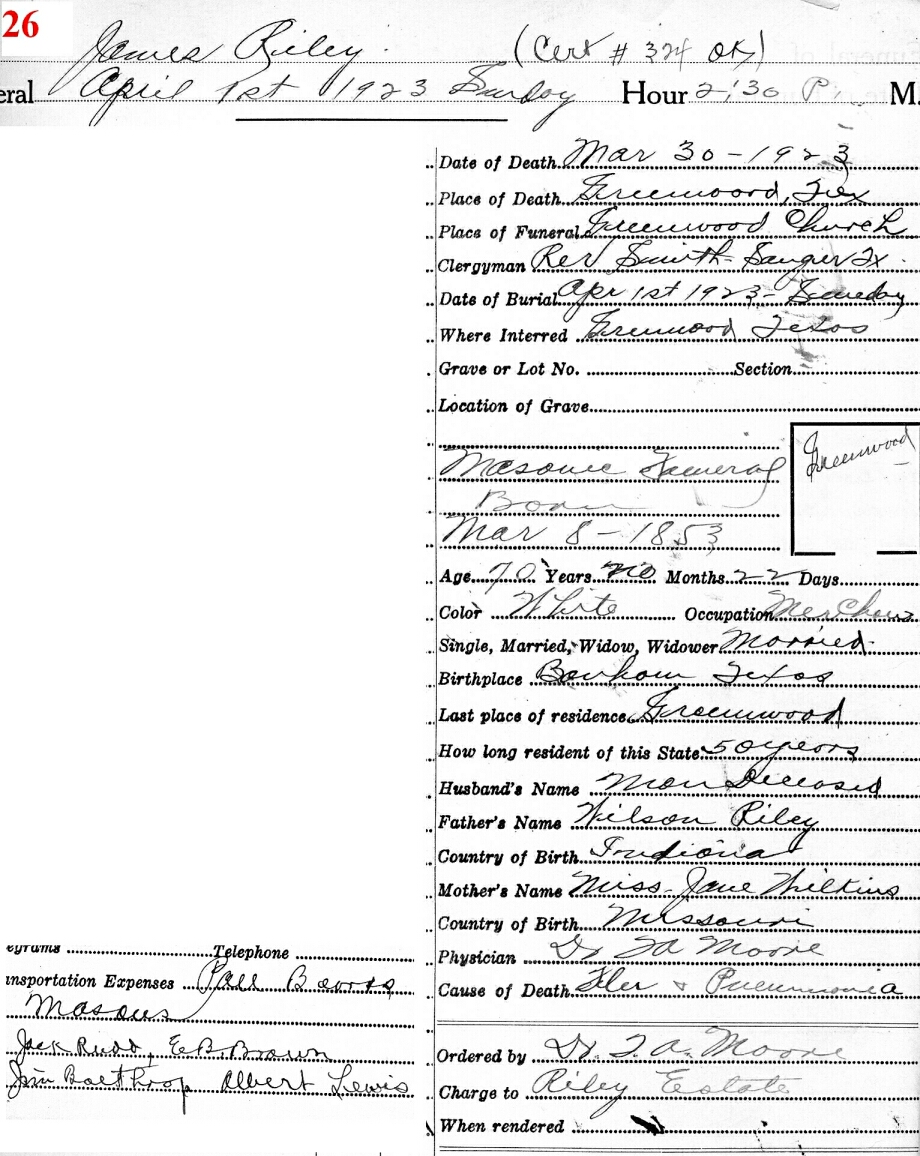 26
James Riley. (Cert # 324 OK)
eral April 1st 1923 Sunday Hour 2:30 P. M.
Date of Death Mar 30 - 1923
Place of Death Greenwood, Tex
Place of Funeral Greenwood Church
Clergyman Rev Smith - Sanger Tx.
Date of Burial Apr 1st 1923 - Sunday
Where Interred Greenwood Texas
Grave or Lot No. Section
Location of Grave
Greenwood
Masonic Funeral
Born
Mar 8 - 1853
Age 70 Years no Months 22 Days
Color White Occupation Merchant
Single, Married, Widow, Widower Married
Birthplace Bonham Texas
Last place of residence Greenwood
How long resident of this State 50 years
Husband's Name Man Deceased
Father's Name Wilson Riley
Country of Birth Indiana
Mother's Name Miss Jane Wilkins
Country of Birth Missouri
Physician Dr TA Moore
Cause of Death Flu & Pneumonia
Ordered by Dr. T. A. Moore
Charge to Riley Estate
When rendered
egrams Telephone
nsportation Expenses Pall Bearers
Masons
Jack Rudd, E.B. Brown
Jim Balthrop Albert Lewis